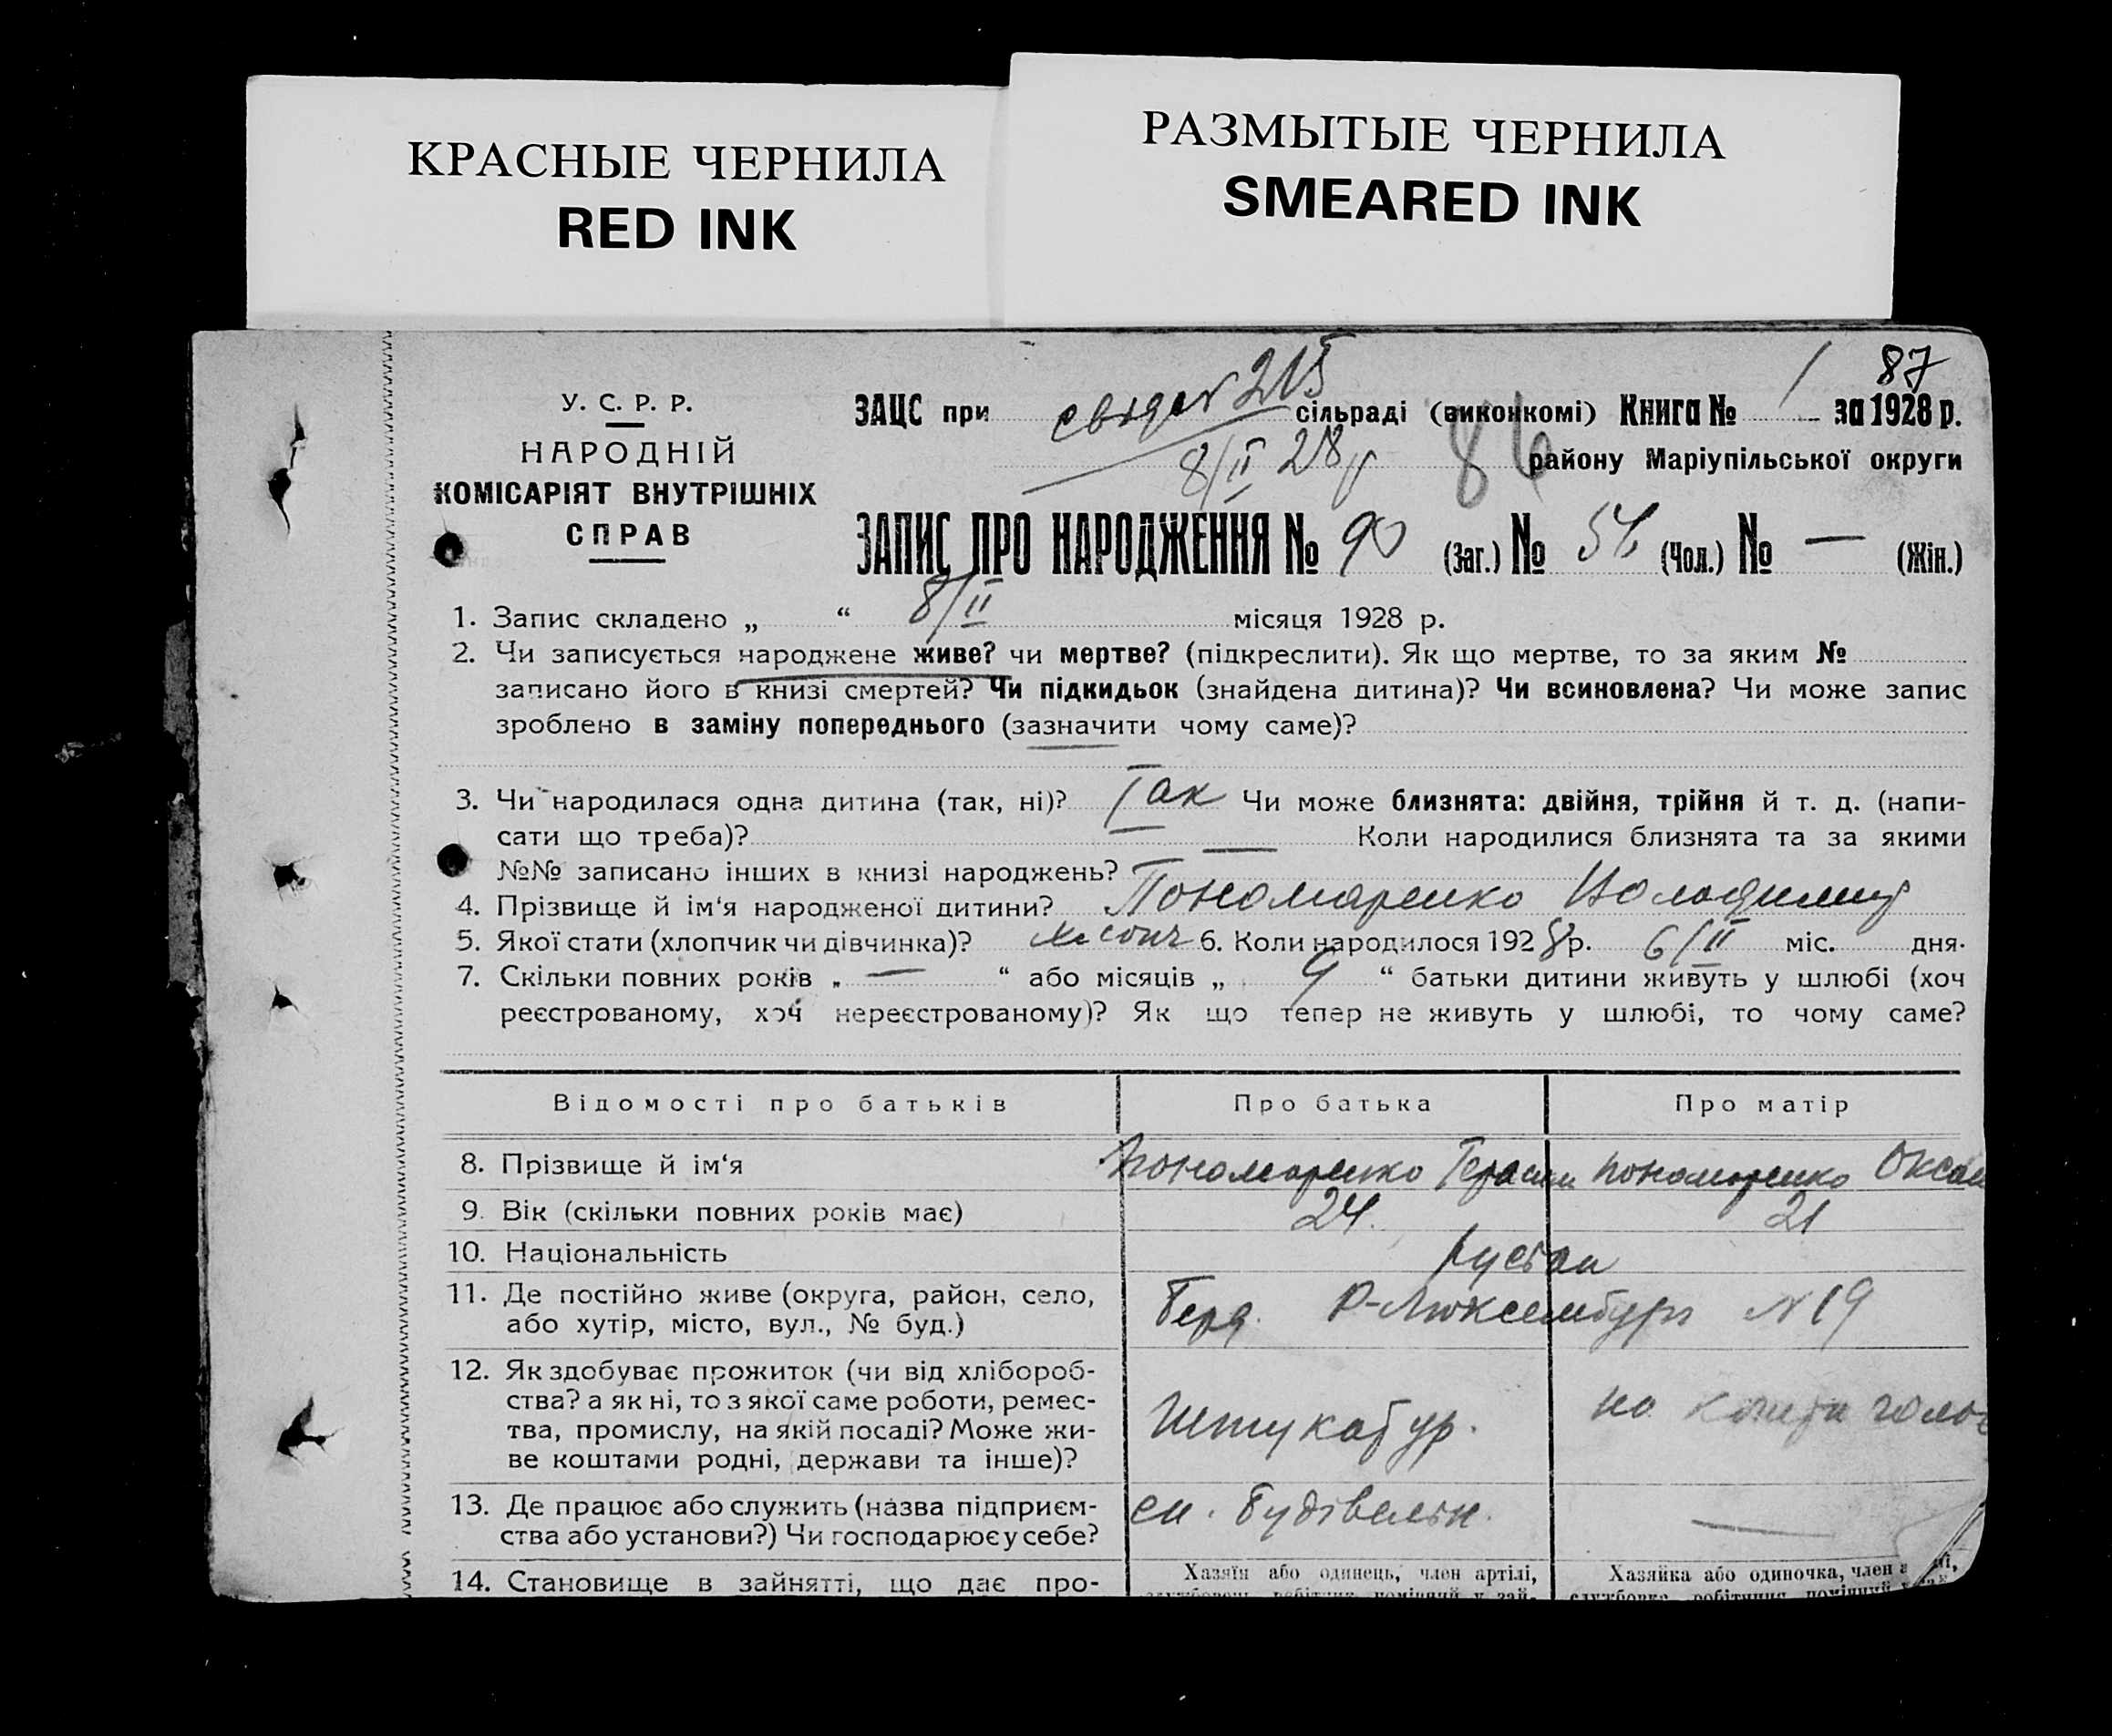 КРАСНЫЕ ЧЕРНИЛА
RED INK
РАЗМЫТЫЕ ЧЕРНИЛА
SMEARED INK
87
У. С. Р. Р.
НАРОДНІЙ
КОМІСАРІЯТ ВНУТРІШНІХ
СПРАВ
ЗАЦС при 215 сільраді (виконкомі) Книга № 1 за 1928 р.
8/II 28 р 86 району Маріупільської округи
ЗАПИС ПРО НАРОДЖЕННЯ № 90 (Заг.) № 54 (Чол.) № — (Жін.)
1. Запис складено „ “ 8/II місяця 1928 р.
2. Чи записується народжене живе? чи мертве? (підкреслити). Як що мертве, то за яким №
записано його в книзі смертей? Чи підкидьок (знайдена дитина)? Чи всиновлена? Чи може запис
зроблено в заміну попереднього (зазначити чому саме)?
3. Чи народилася одна дитина (так, ні)? Так Чи може близнята: двійня, трійня й т. д. (напи-
сати що треба)? — Коли народилися близнята та за якими
№№ записано інших в книзі народжень? —
4. Прізвище й ім‘я народженої дитини? Пономаренко Володимир
5. Якої стати (хлопчик чи дівчинка)? 6. Коли народилося 1928 р. 6/II міс. дня.
7. Скільки повних років „ — “ або місяців „ 9 “ батьки дитини живуть у шлюбі (хоч
реєстрованому, хоч нереєстрованому)? Як що тепер не живуть у шлюбі, то чому саме?
Відомості про батьків Про батька Про матір
8. Прізвище й ім‘я Пономаренко Герасим Пономаренко Оксан
9. Вік (скільки повних років має) 24. 21
10. Національність
11. Де постійно живе (округа, район, село,
або хутір, місто, вул., № буд.) Р-Люксембург №19
12. Як здобуває прожиток (чи від хлібороб-
ства? а як ні, то з якої саме роботи, ремес-
тва, промислу, на якій посаді? Може жи-
ве коштами родні, держави та інше)? Штукатур. на кошти
13. Де працює або служить (назва підприєм-
ства або установи?) Чи господарює у себе? сп. будівельн. —
14. Становище в зайнятті, що дає про-
Хазяїн або одинець, член артілі,
Хазяйка або одиночка, член